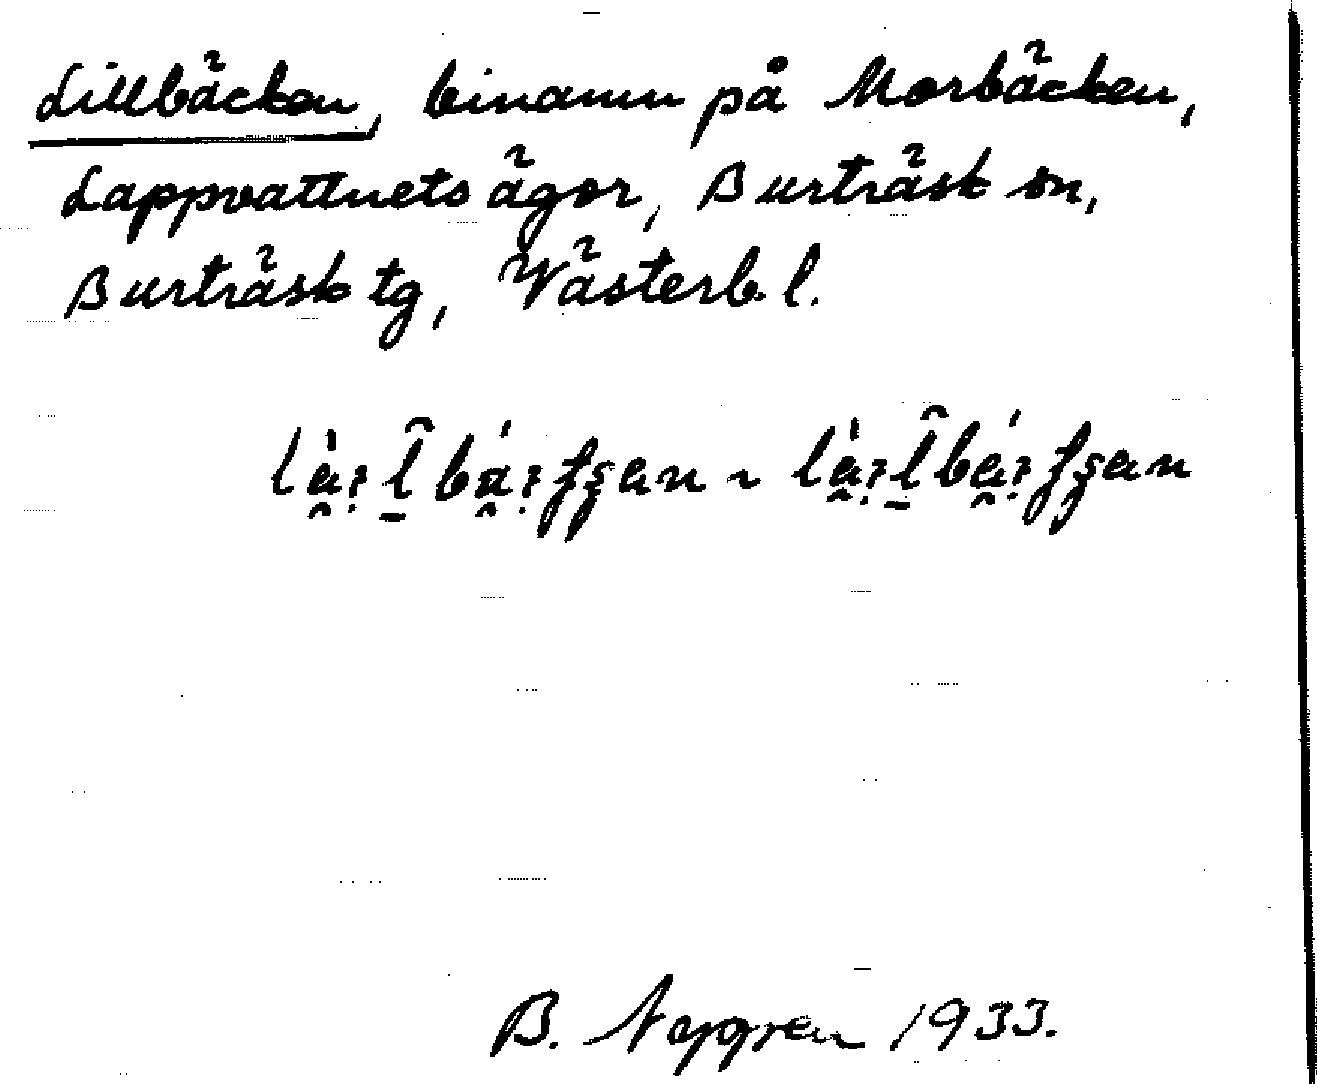 Lillbäcken, binamn på Morbäcken,
Lappvattnets ägor, Burträsk sn,
Burträsk tg, Västerb. l.
B. Nygren 1933.